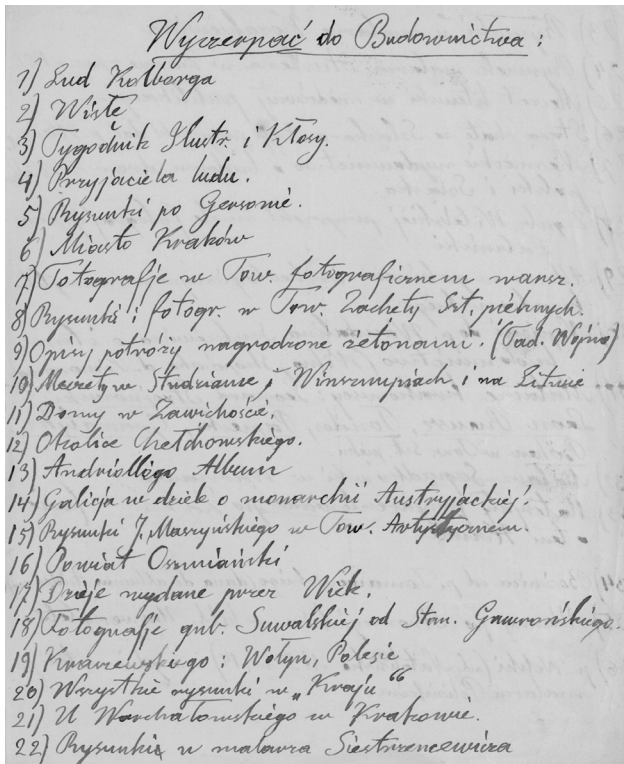 Wyczerpać do Budownictwa:
1) Lud Kolberga
2) Wisłę
3) Tygodnik Ilustr. i Kłosy.
4) Przyjaciela ludu.
5) Rysunki po Gersonie.
6) Miasto Kraków
7) Fotografje w Tow. fotograficznem warsz.
8) Rysunki i fotogr. w Tow. Zachęty Szt. pięknych.
9) Opisy potróży nagrodzone żetonami. (Tad. Wojno)
10) Meczety w Studziance, Winksznupiach i na Litwie
11) Domy w Zawichoście.
12) Okolice Chełchowskiego.
13) Andriollego Album
14) Galicja w dziele o monarchii Austryjackiej.
15) Rysunki J. Maszyńskiego w Tow. Artystycznem.
16) Powiat Oszmiański
17) Dzieje wydane przez Wiek.
18) Fotografje gub. Suwalskiej od Stan. Gawrońskiego.
19) Kraszewskiego: Wołyń, Polesie
20) Wszystkie rysunki w „Kraju“
21) U Warchałowskiego w Krakowie.
22) Rysunki u malarza Siestrzencewicza